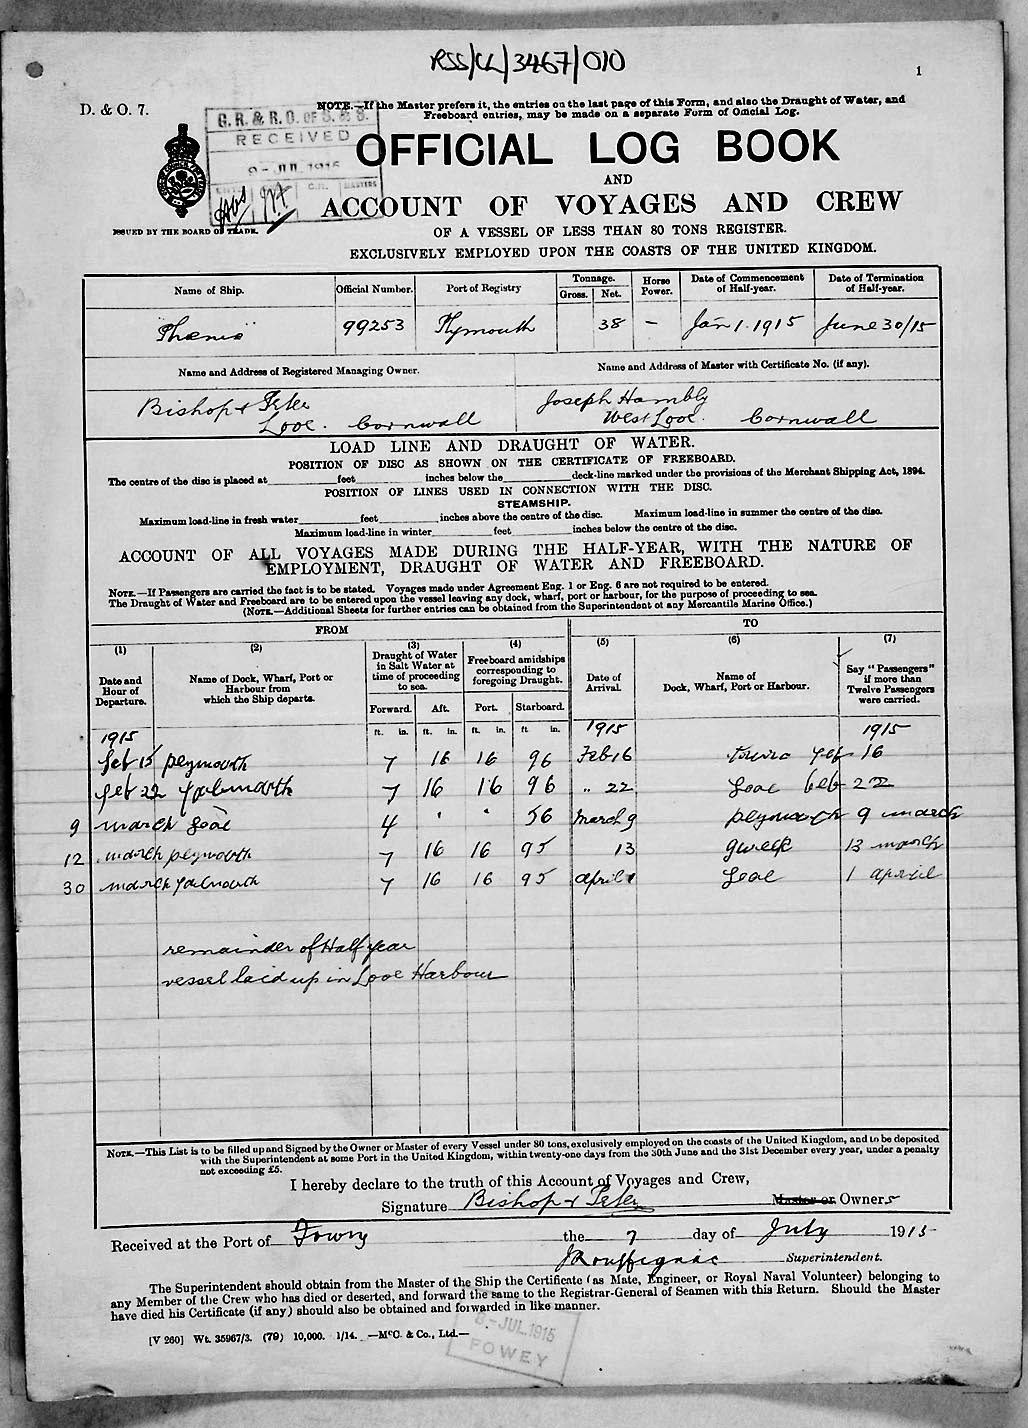 RSS/CL/3467/010
1
D. & O. 7.
NOTE.—If the Master prefers it, the entries on the last page of this Form, and also the Draught of Water, and
Freeboard entries, may be made on a separate Form of Official Log.
G.R. & R.O. OF S. & S.
RECEIVED
9 - JUL 1915
MASTERS
OFFICIAL LOG BOOK
AND
ACCOUNT OF VOYAGES AND CREW
ISSUED BY THE BOARD OF TRADE.
OF A VESSEL OF LESS THAN 80 TONS REGISTER.
EXCLUSIVELY EMPLOYED UPON THE COASTS OF THE UNITED KINGDOM.
Name of Ship. Official Number. Port of Registry Tonnage. Gross. Net. Horse Power. Date of Commencement of Half-year. Date of Termination of Half-year.
99253 Plymouth 38 – Jan 1. 1915 June 30/15
Name and Address of Registered Managing Owner. Name and Address of Master with Certificate No. (if any).
Bishop & Joseph Hambly
Looe. Cornwall West Looe. Cornwall
LOAD LINE AND DRAUGHT OF WATER.
POSITION OF DISC AS SHOWN ON THE CERTIFICATE OF FREEBOARD.
The centre of the disc is placed at feet inches below the deck-line marked under the provisions of the Merchant Shipping Act, 1894.
POSITION OF LINES USED IN CONNECTION WITH THE DISC.
STEAMSHIP.
Maximum load-line in fresh water feet inches above the centre of the disc. Maximum load-line in summer the centre of the disc.
Maximum load-line in winter feet inches below the centre of the disc.
ACCOUNT OF ALL VOYAGES MADE DURING THE HALF-YEAR, WITH THE NATURE OF
EMPLOYMENT, DRAUGHT OF WATER AND FREEBOARD.
NOTE.—If Passengers are carried the fact is to be stated. Voyages made under Agreement Eng. 1 or Eng. 6 are not required to be entered.
The Draught of Water and Freeboard are to be entered upon the vessel leaving any dock, wharf, port or harbour, for the purpose of proceeding to sea.
(NOTE.—Additional Sheets for further entries can be obtained from the Superintendent of any Mercantile Marine Office.)
FROM TO
(1) (2) (3) (4) (5) (6) (7)
Date and Hour of Departure. Name of Dock, Wharf, Port or Harbour from which the Ship departs. Draught of Water in Salt Water at time of proceeding to sea. Freeboard amidships corresponding to foregoing Draught. Date of Arrival. Name of Dock, Wharf, Port or Harbour. Say "Passengers" if more than Twelve Passengers were carried.
Forward. Aft. Port. Starboard.
ft. in. ft. in. ft. in. ft. in.
1915 1915 1915
feb 15 plymouth 7 16 16 96 Feb 16 feb 16
feb 22 falmouth 7 16 16 96 " 22 Looe feb 22
9 march Looe 4 " " 56 march 9 plymouth 9 march
12 march plymouth 7 16 16 95 13 gweek 13 march
30 march falmouth 7 16 16 95 april 1 Looe 1 april
remainder of Half year
vessel laid up in Looe Harbour
NOTE.—This List is to be filled up and Signed by the Owner or Master of every Vessel under 80 tons, exclusively employed on the coasts of the United Kingdom, and to be deposited
with the Superintendent at some Port in the United Kingdom, within twenty-one days from the 30th June and the 31st December every year, under a penalty
not exceeding £5.
I hereby declare to the truth of this Account of Voyages and Crew,
Signature Bishop & Master or Owners
Received at the Port of Fowey the 7 day of July 1915
Superintendent.
The Superintendent should obtain from the Master of the Ship the Certificate (as Mate, Engineer, or Royal Naval Volunteer) belonging to
any Member of the Crew who has died or deserted, and forward the same to the Registrar-General of Seamen with this Return. Should the Master
have died his Certificate (if any) should also be obtained and forwarded in like manner.
[V 260] Wt. 35967/3. (79) 10,000. 1/14. —McC. & Co., Ltd.—
8 - JUL. 1915
FOWEY